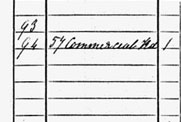 93
94 57 Commercial Rd 1